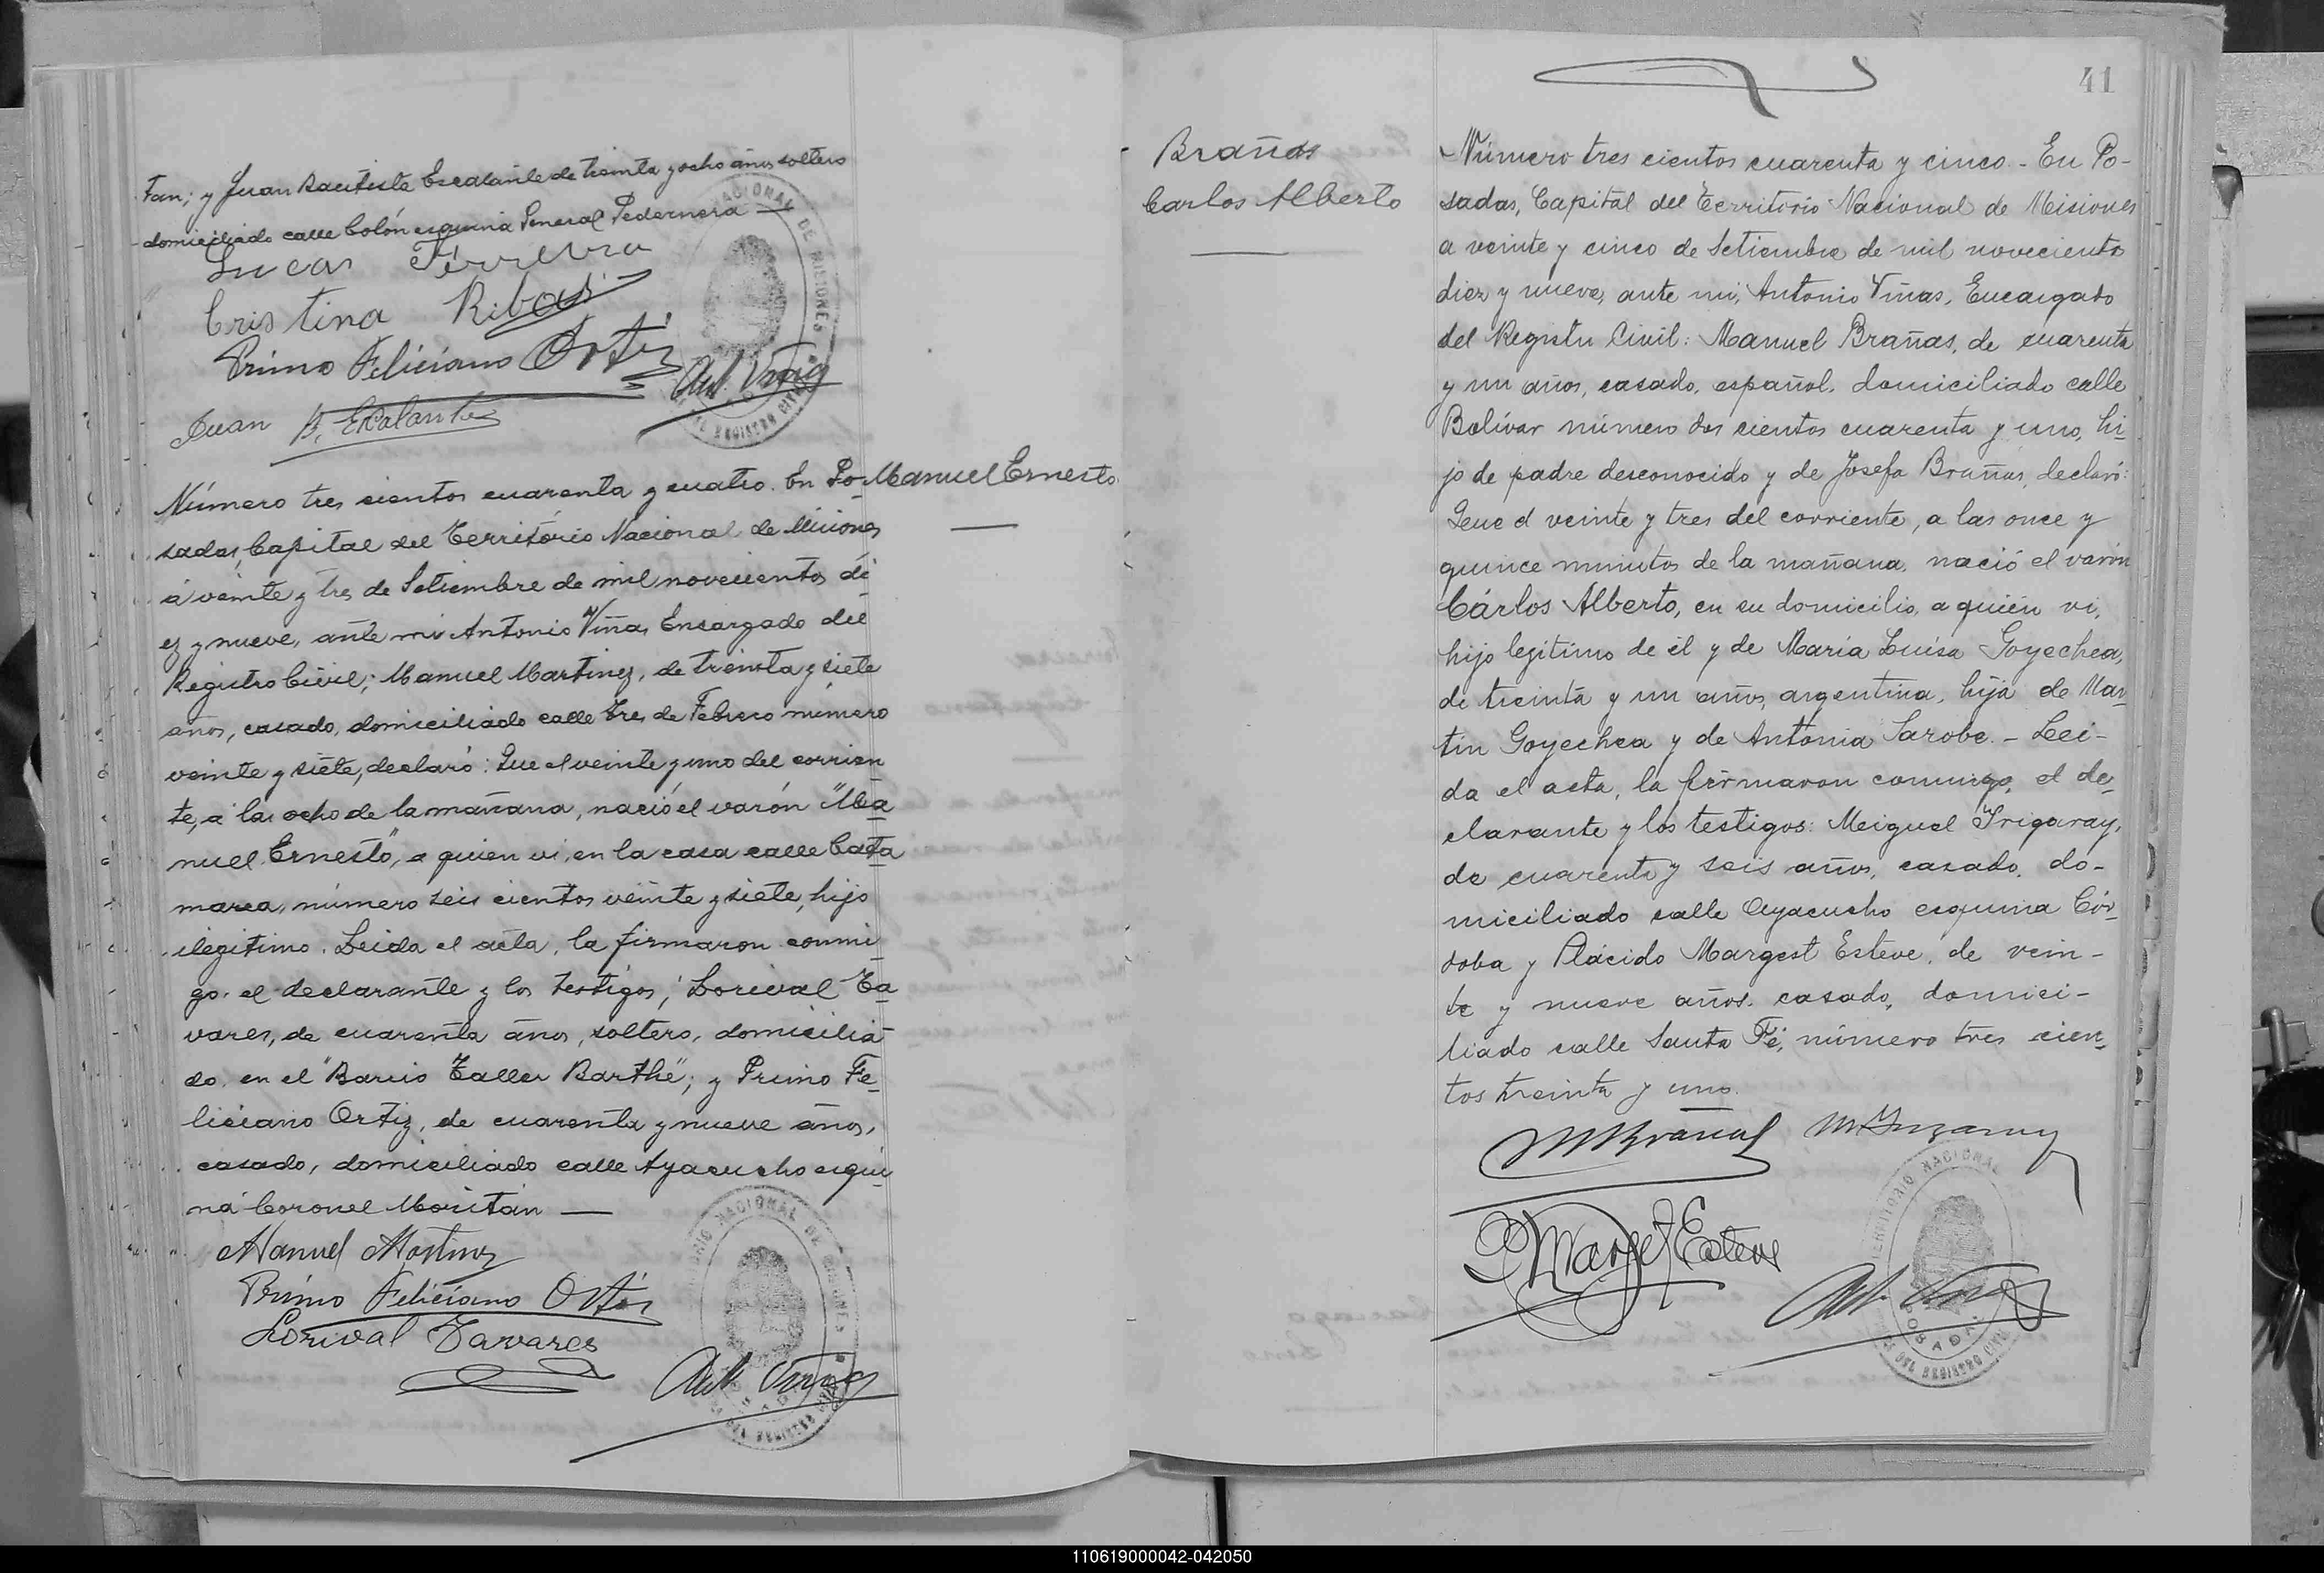 tan; y Juan Bautista Escalante de treinta y ocho años soltero
domiciliado calle Colón esquina General Pedernera —
Lucas Ferreira
Cristina Ribas
Primo Feliciano Ortiz
Juan B. Escalante
Ant. Viñas
Número tres cientos cuarenta y cuatro. En Po-
Manuel Ernesto
sadas, Capital del Territorio Nacional de Misiones
á veinte y tres de Setiembre de mil novecientos di-
ez y nueve, ante mi Antonio Viñas Encargado del
Registro Civil; Manuel Martinez, de treinta y siete
años, casado, domiciliado calle Tres de Febrero número
veinte y siete, declaró: Que el veinte y uno del corrien-
te, a las ocho de la mañana, nació el varón "Ma-
nuel Ernesto", a quien vi, en la casa calle Cata-
marca, número seis cientos veinte y siete, hijo
ilegitimo. Leida el acta, la firmaron conmi-
go, el declarante y los testigos; Lorival Ta-
vares, de cuarenta años, soltero, domicilia-
do, en el "Barrio Taller Barthe"; y Primo Fe-
liciano Ortiz, de cuarenta y nueve años,
casado, domiciliado calle Ayacucho esqui-
na Coronel Moritán —
Manuel Martinez
Primo Feliciano Ortiz
Lorival Tavares
Ant. Viñas
41
Brañas
Carlos Alberto
Número tres cientos cuarenta y cinco - En Po-
sadas, Capital del Territorio Nacional de Misiones
a veinte y cinco de Setiembre de mil novecientos
diez y nueve, ante mi, Antonio Viñas, Encargado
del Registro Civil: Manuel Brañas, de cuarenta
y un años, casado, español, domiciliado calle
Bolívar número dos cientos cuarenta y uno, hi-
jo de padre desconocido y de Josefa Brañas, declaró:
Que el veinte y tres del corriente, a las once y
quince minutos de la mañana, nació el varón
Cárlos Alberto, en su domicilio, a quién vi,
hijo legitimo de él y de María Luisa Goyechea,
de treinta y un años, argentina, hija de Mar-
tin Goyechea y de Antonia Sarobe. - Lei-
da el acta, la firmaron conmigo, el de-
clarante y los testigos: Meiguel Irigaray,
de cuarenta y seis años, casado, do-
miciliado calle Ayacucho esquina Cór-
doba y Plácido Margest Esteve, de vein-
te y nueve años, casado, domici-
liado calle Santa Fé, número tres cien-
tos treinta y uno.
M Brañas
M Yrigaray
P Margest Esteve
Ant. Viñas
TERRITORIO NACIONAL
POSADAS
DEL REGISTRO CIVIL
110619000042-042050